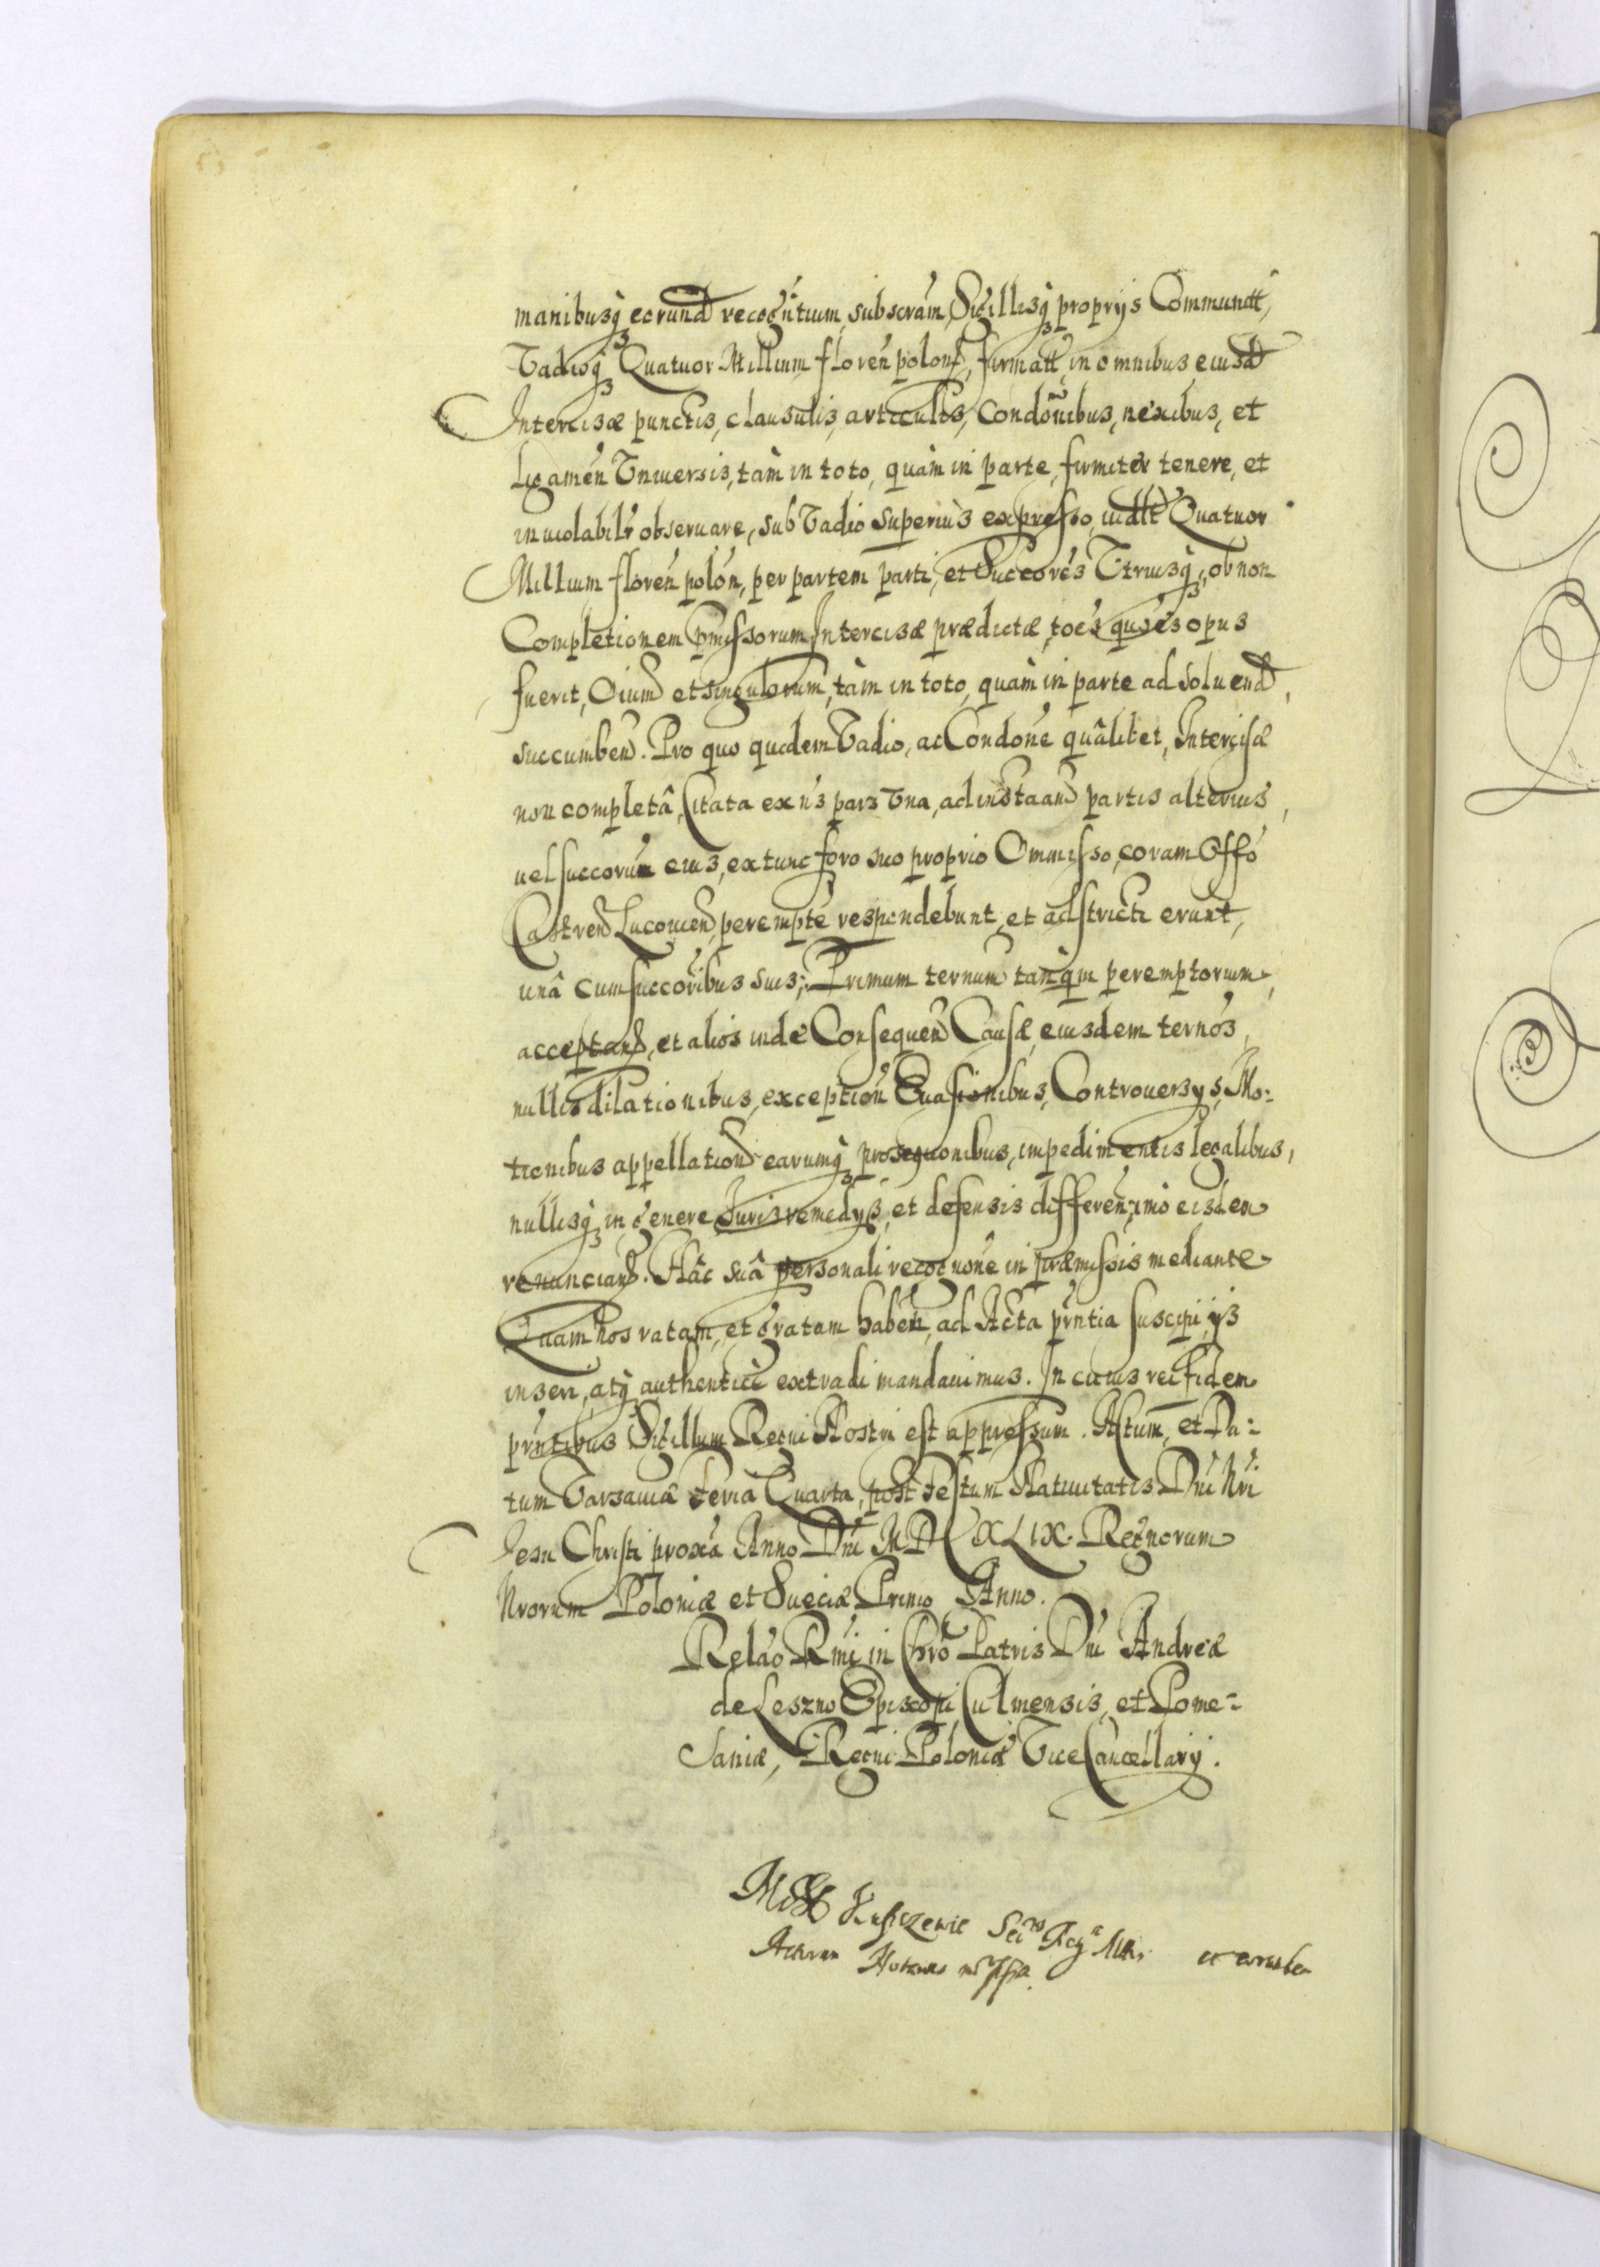 manibusq̀ eorund recogntium, subscram, Sigillisq̀ proprijs Communitt,
Vadioq̀ Quatuor Millium floren polon, firmatt, in omnibus eiusd
Intercisæ punctis, clausulis, articulis, Condonibus, nexibus, et
Ligamen Vniuersis, tàm in toto, quàm in parte, firmiter tenere, et
inuiolabilr obseruare, sub Vadio superius expresso, uidlt Quatuor
Millium floren polon, per partem parti, et Succores Vtriusq̀, ob non
Completionem pmissorum Intercisæ prædictæ, toes quoes opus
fuerit, Oium et singulorum, tàm in toto, quàm in parte ad soluend,
succumben. Pro quo quidem Vadio, ac Condone quâlibet, Intercisæ
non completâ, Citata ex ijs pars Vna, ad instaan partis alterius,
uel succorum eius, extunc foro suo proprio Ommisso, coram Offo
Castren Lucouien, perempte respondebunt, et adstricti erunt,
unâ cum succoribus suis; Primum ternum tanqm peremptorium,
acceptan, et alios inde Consequen Causæ, eiusdem ternos,
nullis dilationibus, exception Euasionibus, Controuersys, Mo:
tionibus appellation earumq̀ prosequonibus, impedimentis legalibus,
nullisq̀ in genere Iuris remedys, et defensis differen; imò eisdem
renuncian. Hâc suâ personali recognone in præmissis mediante
Quam Nos ratam, et gratam haben, ad Acta pntia suscipi, ijs
inseri, atq̀ authenticè extradi mandauimus. In cuius rei fidem
pntibus Sigillum Regni Nostri est appressum. Actum, et Da:
tum Varsauiæ Feria Quarta, post Festum Natiuitatis Dni Nri
Iesu Christi proxa Anno Dni MDCXLIX. Regnorum
Nrorum Poloniæ et Sueciæ Primo Anno.
Relao Rmi in Chro Patris Dni Andreæ
de Leszno Episcopi Culmensis, et Pome:
saniæ, Regni Poloniæ Vice Cancellarij.